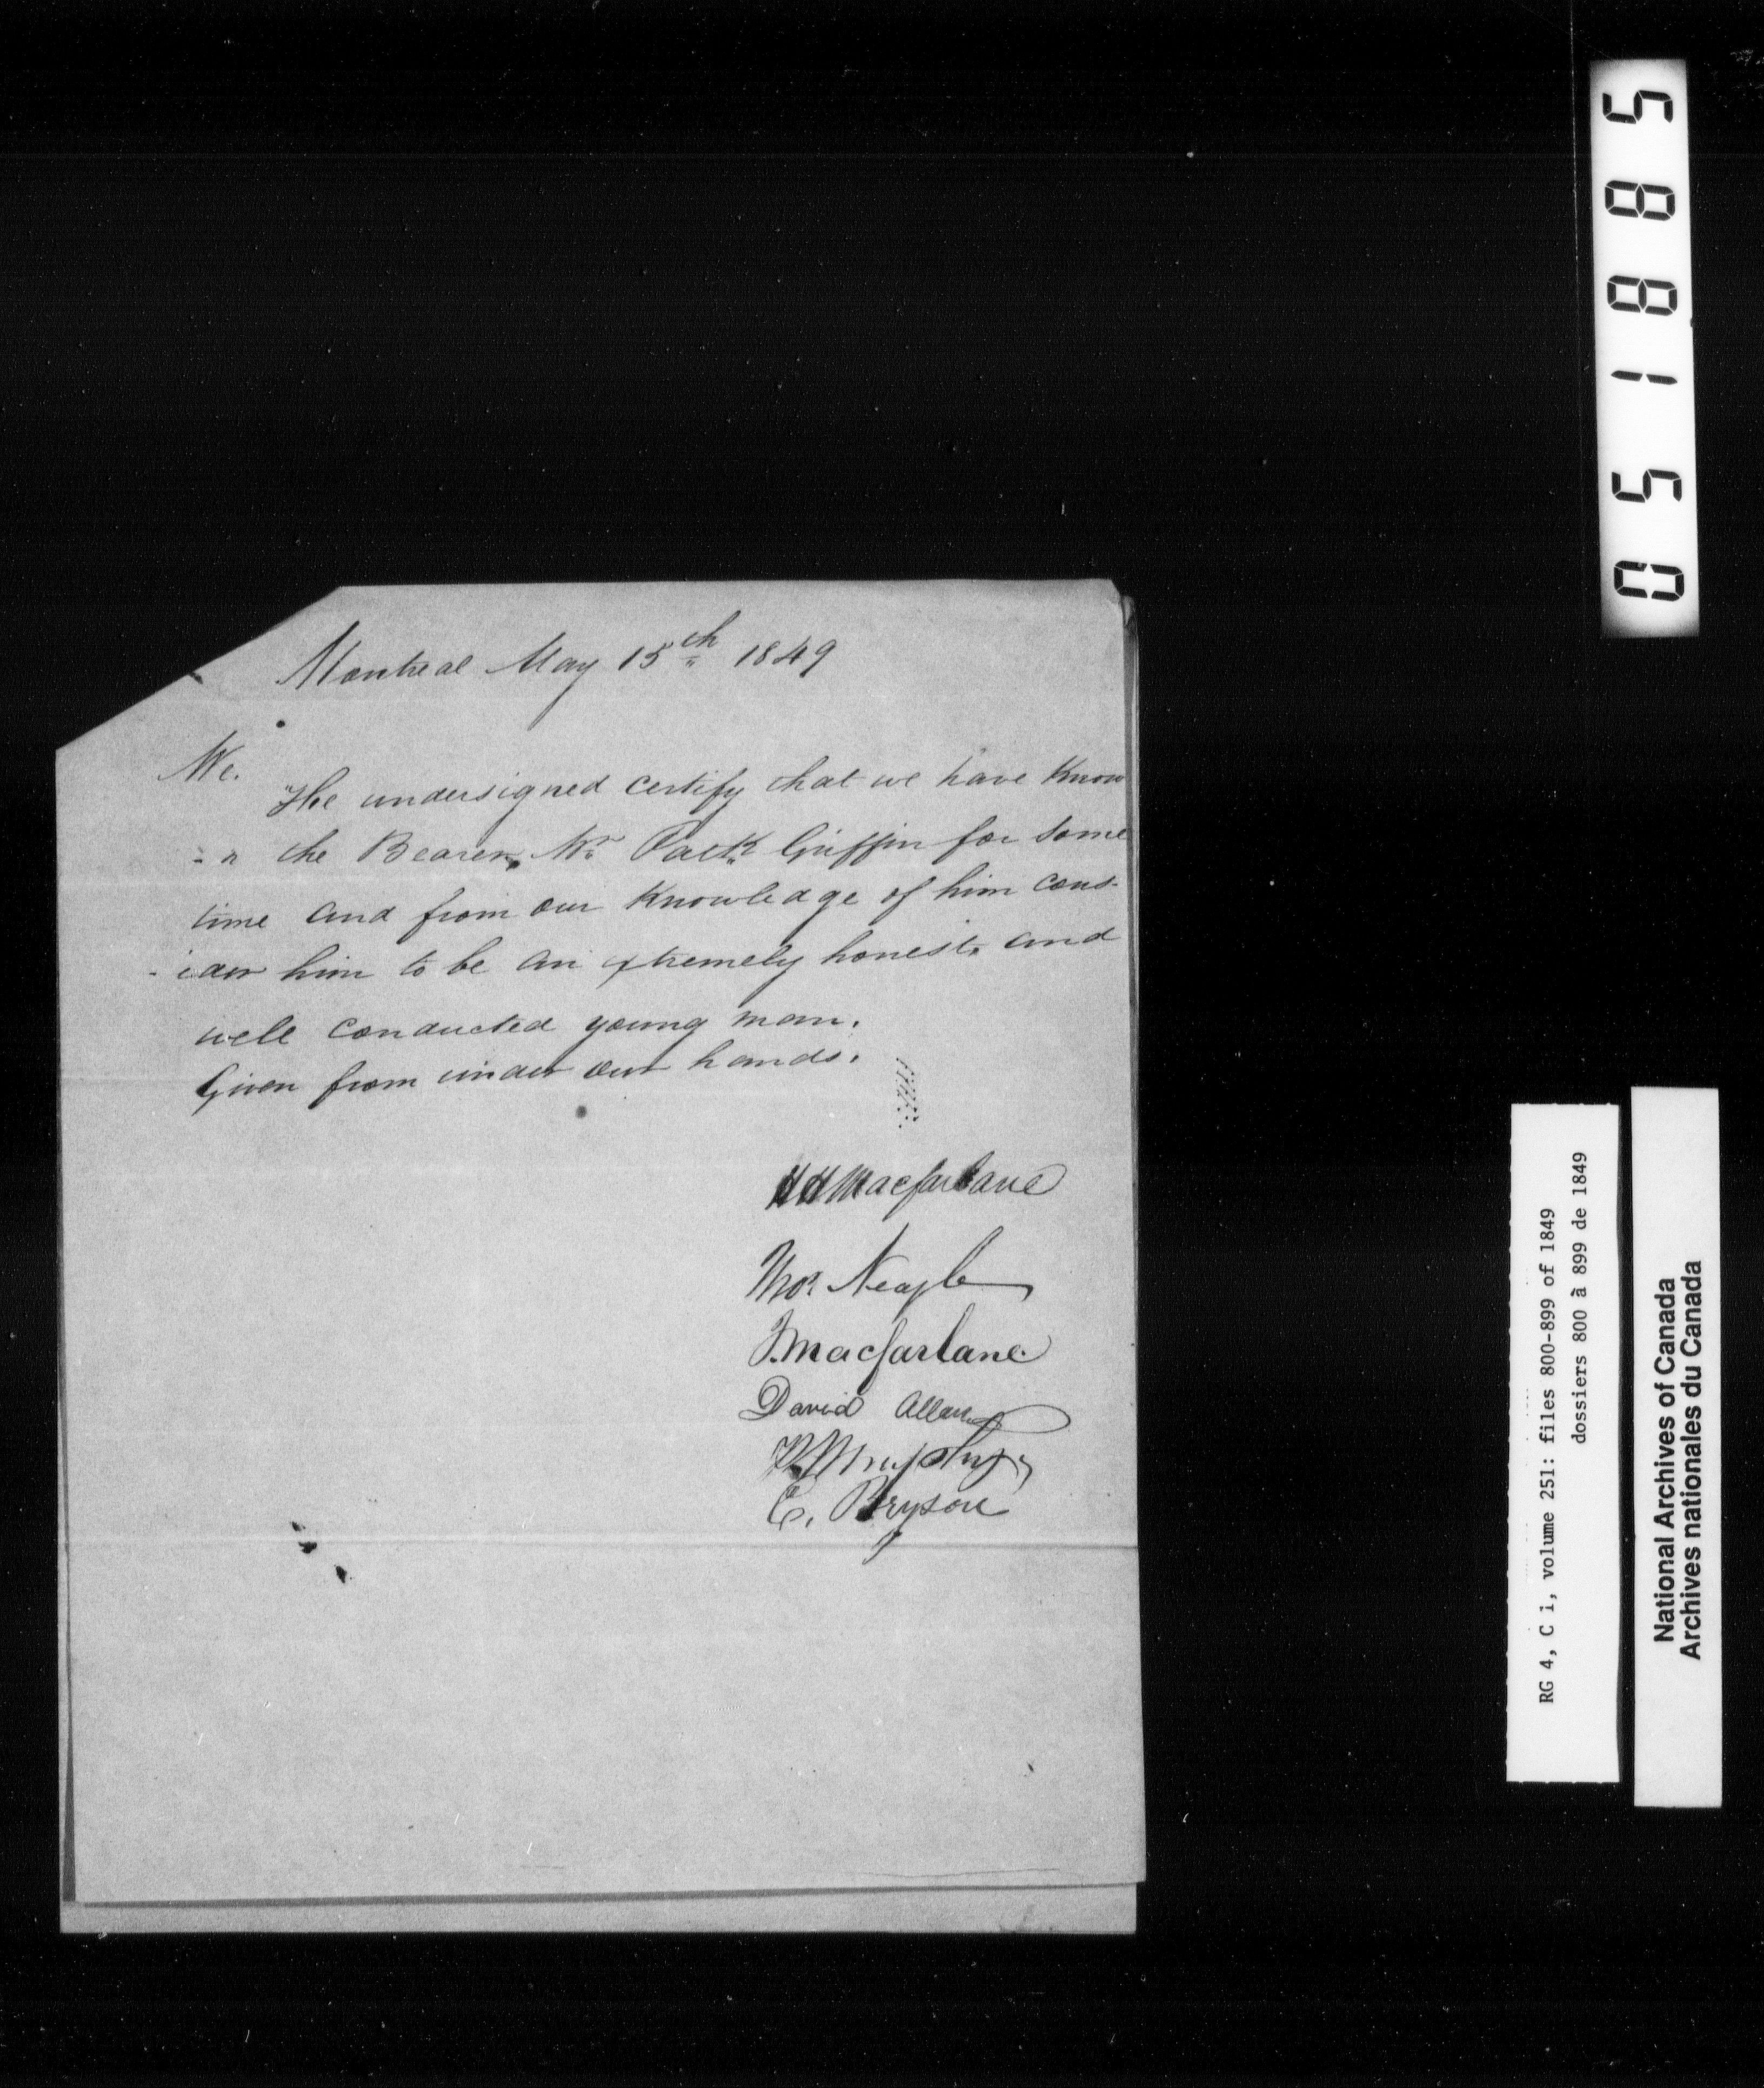 Montreal May 15th 1849
We.
The undersigned certify that we have know
- n the Bearer, Mr Patk Griffin for some
time and from our Knowledge of him cons-
- ider him to be an extremely honest, and
well conducted young man.
Given from under our hands.
Macfarlane
Thos Neagle
J. Macfarlane
David Allan
Murphy
C. Bryson
051885
RG 4, C i, volume 251: files 800-899 of 1849
dossiers 800 à 899 de 1849
National Archives of Canada
Archives nationales du Canada